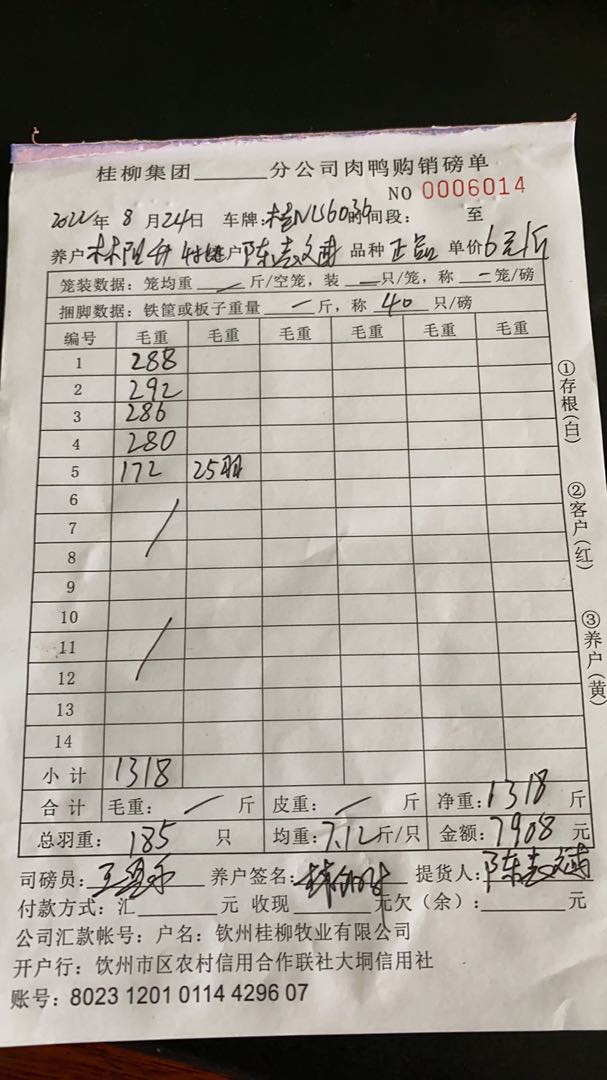 桂柳集团______分公司肉鸭购销磅单
NO 0006014
2022年 8 月 24日 车牌:桂NU6036 时间段: 至
养户 户 陈志斌 品种 正品 单价 6元/斤
笼装数据: 笼均重 — 斤/空笼，装 — 只/笼，称 — 笼/磅
捆脚数据: 铁筐或板子重量 — 斤，称 40 只/磅
编号 毛重 毛重 毛重 毛重 毛重 毛重
1 288
2 292
3 286
4 280
5 172 25羽
6
7
8
9
10
11
12
13
14
小计 1318
合计 毛重: — 斤 皮重: — 斤 净重: 1318 斤
总羽重: 185 只 均重: 7.12 斤/只 金额: 7908 元
司磅员: 养户签名: 提货人: 陈志斌
付款方式: 汇______元 收现______元欠（余）:______元
公司汇款帐号: 户名: 钦州桂柳牧业有限公司
开户行: 钦州市区农村信用合作联社大垌信用社
账号: 8023 1201 0114 4296 07
①存根(白)
②客户(红)
③养户(黄)